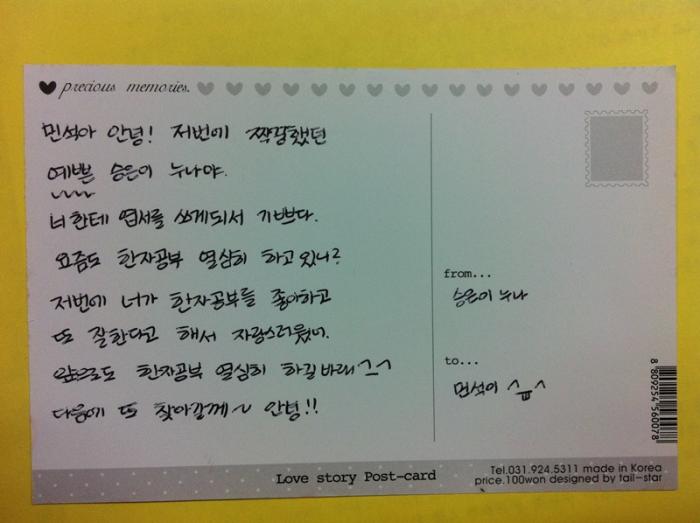 precious memories.
민석아 안녕! 저번에 짝꿍했던
예쁜 승은이 누나야.
너한테 엽서를 쓰게되서 기쁘다.
요즘도 한자공부 열심히 하고 있니?
저번에 너가 한자공부를 좋아하고
또 잘한다고 해서 자랑스러웠어.
앞으로도 한자공부 열심히 하길 바래^-^
다음에 또 찾아갈께~ 안녕!!
from...
승은이 누나
to...
민석이 ^ㅠ^
8 809254 560078
Love story Post-card
Tel.031.924.5311 made in Korea
price.100won designed by tail-star